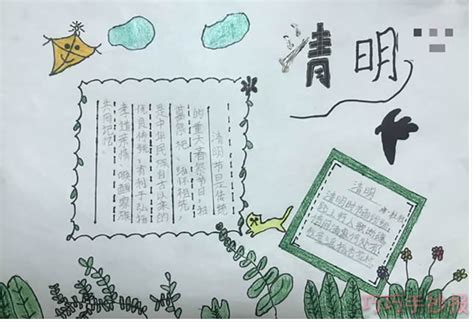 清明
清明节是传统
的重大春祭节日,扫
墓祭祀、缅怀祖先,
是中华民族自古以来的
优良传统,有利于弘扬
孝道亲情、唤醒家族
共同记忆
清明
杜牧
清明时节雨纷纷
路上行人欲断魂
借问酒家何处有
牧童遥指杏花村
巧巧手抄报